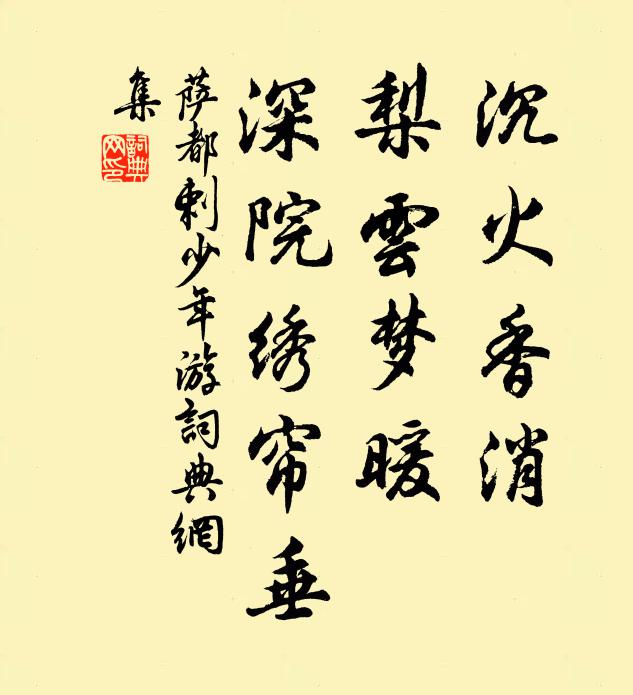 沉火香消
梨雲梦暖
深院绣帘垂
萨都剌少年游詞典網
集
詞典
网印